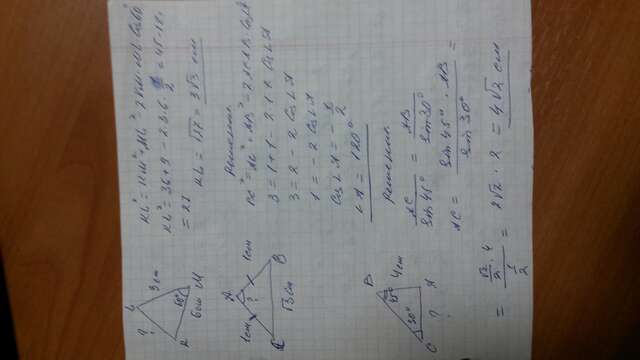 L
?
3 cm
K
60°
6 cm
M
KL² = KM² + ML² - 2 KM · ML · Cos 60°
KL² = 36 + 9 - 2·3·6 · 1/2 = 45 - 18 =
= 27
KL = √27 = 3√3 см
A
1 см
?
1 см
C
B
√3 см
Решение
BC² = AC² + AB² - 2 AC · AB · Cos∠A
3 = 1 + 1 - 2·1·1 · Cos∠A
3 = 2 - 2 Cos∠A
1 = -2 Cos∠A
Cos∠A = - 1/2
∠A = 120°
B
45°
4 см
C
30°
?
A
Решение
AC / Sin 45° = AB / Sin 30°
AC = Sin 45° · AB / Sin 30° =
= √2/2 · 4 / 1/2 = 2√2 · 2 = 4√2 см